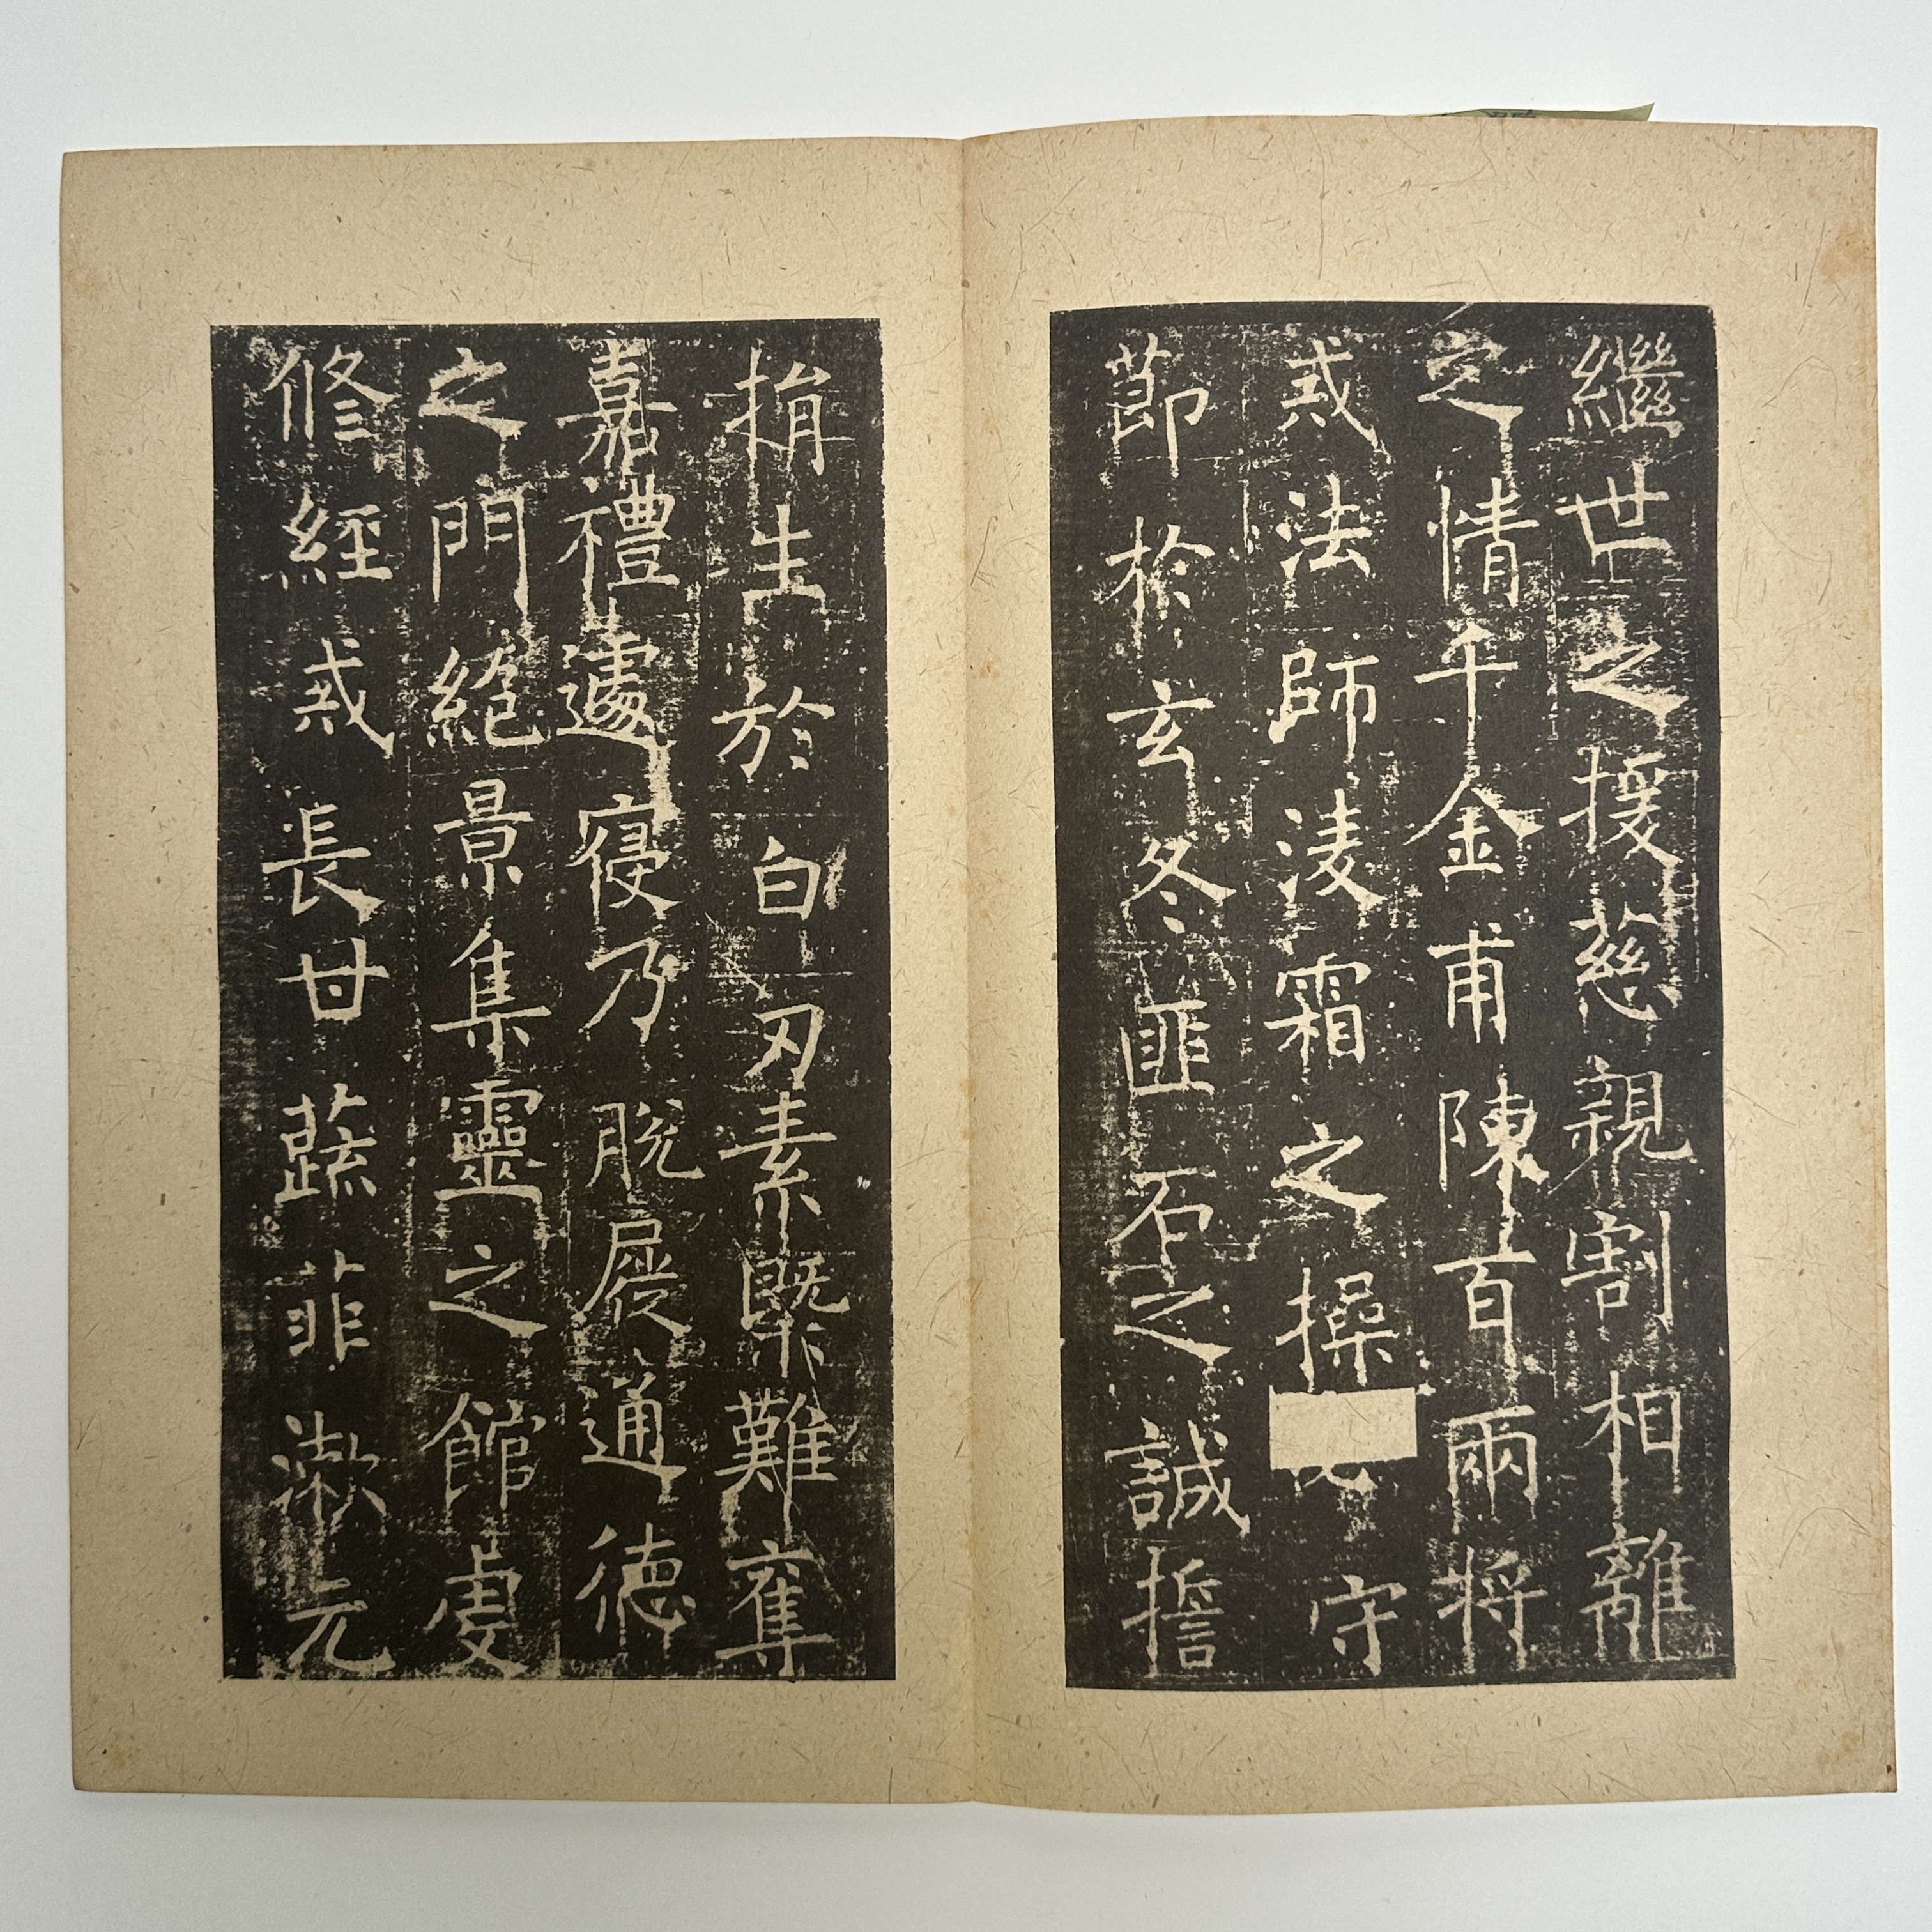 繼世之援慈親割相離
之情千金甫陳百兩將
戒法師淩霜之操守
莭於玄冬匪石之誠擔
捐生於白刃素槩難奪
嘉禮遽寢乃脫屣通德
之門絕景集靈之館虔
修經戒長甘蔬菲漱元